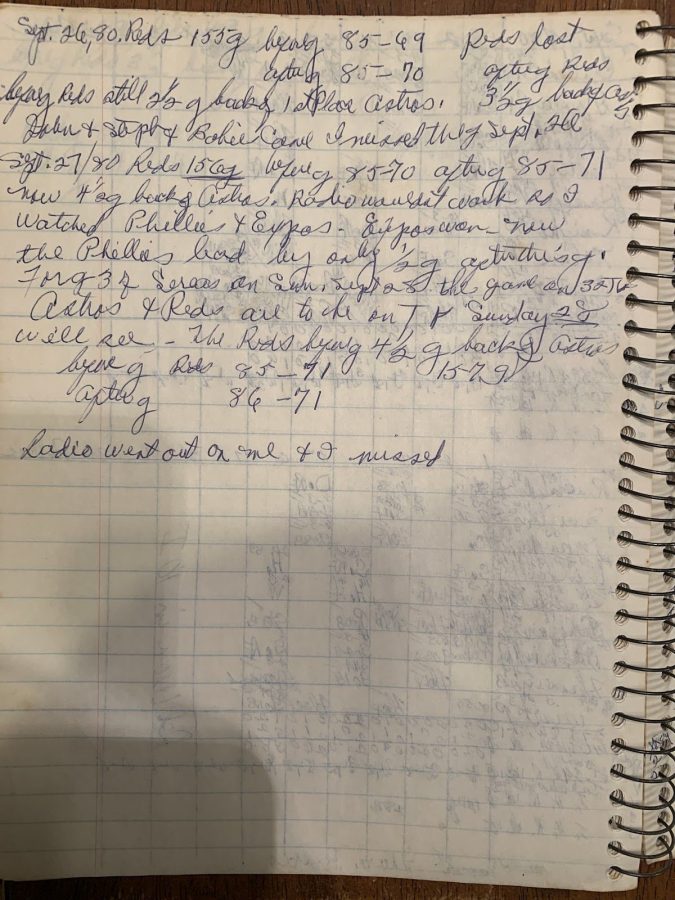 Sept. 26, 80. Reds 155g bying 85-69 Reds lost
afting 85-70 afting Reds
bying Reds still 2 1/2 g back of 1st Place Astros. 3 1/2 g back of
John & Steph & Came I missed the g Sept. 26
Sept. 27/80 Reds 156g bying 85-70 afting 85-71
now 4 1/2 g back of Astros. Radio wouldnt work so I
watched Phillies & Expos. Expos won - now
the Phillies lead by only 1/2 g after this g.
3 g Series on Sun. Sept 28 the game on
Astros & Reds are to be on T V Sunday 28
will see - The Reds bying 4 1/2 g back of Astros
bying Reds 85-71 157g
afting 86-71
Radio went out on me & I missed